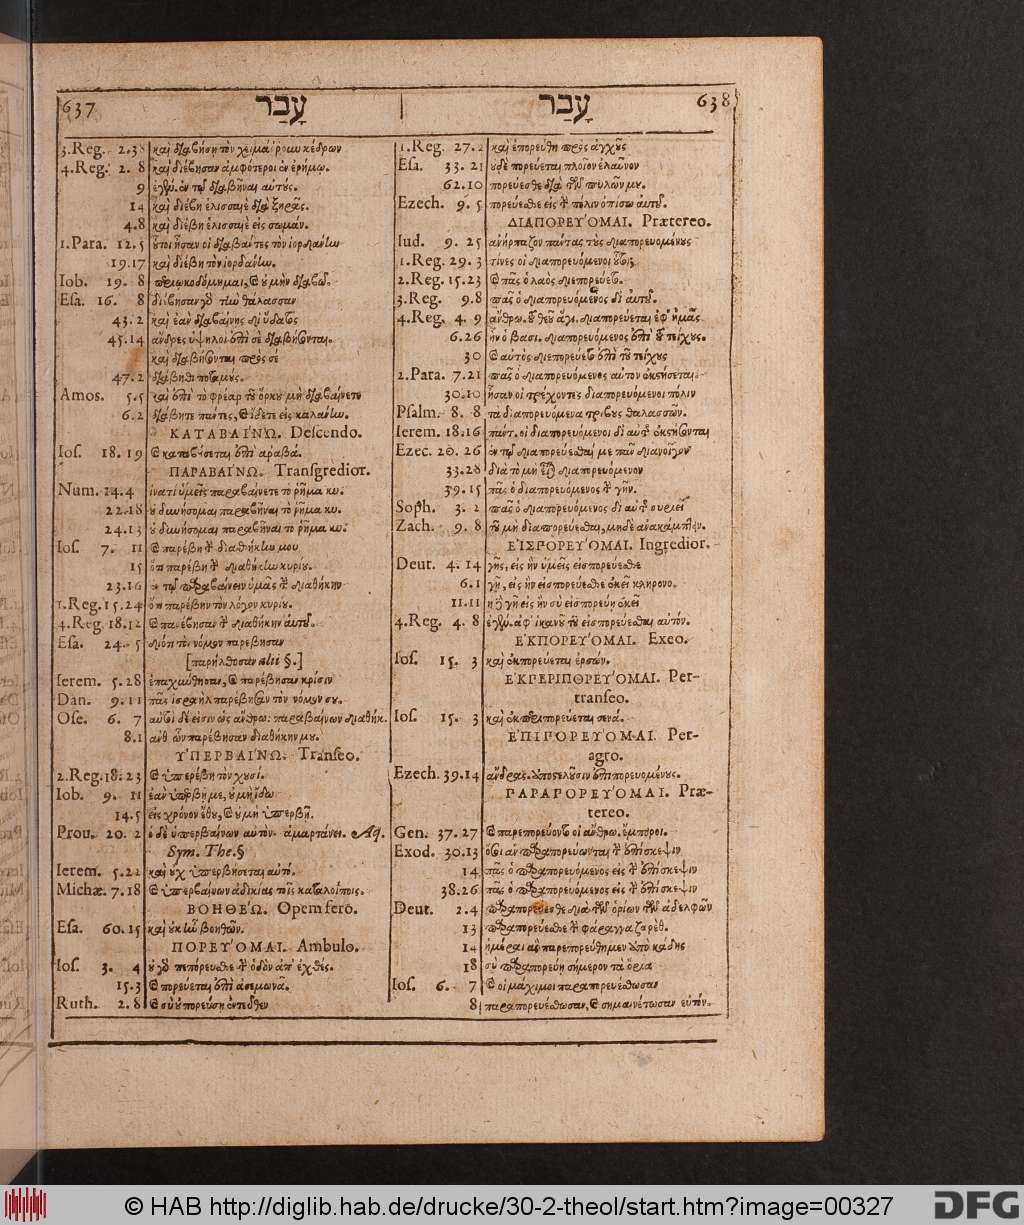 637 עָבַר
עָבַר 638
3.Reg. 2.38 καὶ διαβήσῃ τὸν χειμάρρουν κέδρων
4.Reg. 2. 8 καὶ διέβησαν ἀμφότεροι ἐν ἐρήμῳ.
9 ἐν τῷ διαβῆναι αὐτούς.
14 καὶ διέβη ἑλισσαιὲ διὰ ξηρᾶς.
4.8 καὶ διέβη ἑλισσαιὲ εἰς σωμάν.
1.Para. 12.5 οὗτοι ἦσαν οἱ διαβάντες τὸν ἰορδάνην
19.17 καὶ διέβη τὸν ἰορδάνην.
Iob. 19. 8 καὶ οὐ μὴν διαβῶ.
Esa. 16. 8 διέβησαν γὸ τὴν θάλασσαν
43.2 καὶ ἐὰν διαβαίνῃς δι' ὕδατος
45.14 ἄνδρες ὑψηλοὶ ἐπὶ σὲ διαβήσονται.
καὶ διαβήσονται πρὸς σέ
47.2 διάβηθι ποταμούς.
Amos. 5.5 καὶ ἐπὶ τὸ φρέαρ τοῦ ὅρκου μὴ διαβαίνετε
6.2 διάβητε πάντες, καὶ ἴδετε εἰς καλάνην.
ΚΑΤΑΒΑΙΝΩ. Descendo.
Ios. 18.19 καὶ καταβήσεται ἐπὶ αραβά.
ΠΑΡΑΒΑΙΝΩ. Transgredior.
Num. 14.4 ἱνατί ὑμεῖς παραβαίνετε τὸ ῥῆμα κυ.
22.18 οὐ δυνήσομαι παραβῆναι τὸ ῥῆμα κυ.
24.13 οὐ δυνήσομαι παραβῆναι τὸ ῥῆμα κυ.
Ios. 7. 11 καὶ παρέβη τὴν διαθήκην μου
15 ὅτι παρέβη τὴν διαθήκην κυρίου.
23.16 ἐν τῷ παραβαίνειν ὑμᾶς τὴν διαθήκην
1.Reg.15.24 ὅτι παρέβην τὸν λόγον κυρίου.
4.Reg.18.12 καὶ παρέβησαν τὴν διαθήκην αὐτοῦ.
Esa. 24. 5 διότι τὸν νόμον παρέβησαν
[παρήλθοσαν alii §.]
Ierem. 5.28 καὶ παρέβησαν κρίσιν
Dan. 9.11 πᾶς ἰσραὴλ παρέβησαν τὸν νόμον σου.
Ose. 6. 7 αὐτοὶ δέ εἰσιν ὡς ἄνθρω: παραβαίνων διαθήκ.
8.1 ἀνθ' ὧν παρέβησαν διαθήκην μου.
ΥΠΕΡΒΑΙΝΩ. Transeo.
2.Reg.18.23 καὶ ὑπερέβη τὸν χυσί.
Iob. 9. 11 ἐὰν ὑπερβῇ με, οὐ μὴ ἴδω
14.5 εἰς χρόνον ἔθου, καὶ οὐ μὴ ὑπερβῇ.
Prou. 20. 2 ὁ δὲ ὑπερβαίνων αὐτὸν ἁμαρτάνει. Aq.
Sym. The.§
Ierem. 5.22 καὶ οὐχ ὑπερβήσεται αὐτό.
Michæ. 7.18 καὶ ὑπερβαίνων ἀδικίας τοῖς καταλοίποις.
ΒΟΗΘΕΩ. Opem fero.
Esa. 60.15 καὶ οὐκ ἦν βοηθῶν.
ΠΟΡΕΥΟΜΑΙ. Ambulo.
Ios. 3. 4 οὐ γὸ πεπόρευσθε τὴν ὁδὸν ἀπ' ἐχθές.
15.3 καὶ πορεύεται ἐπὶ ασεμωνᾶ.
Ruth. 2. 8 καὶ σὺ οὐ πορεύσῃ ἐντεῦθεν
1.Reg. 27.2 καὶ ἐπορεύθη πρὸς ἀγχοῦς
Esa. 33. 21 οὐδὲ πορεύεται πλοῖον ἐλαῦνον
62.10 πορεύεσθε διὰ τῶν πυλῶν μου.
Ezech. 9. 5 πορεύεσθε εἰς τὴν πόλιν ὀπίσω αὐτοῦ.
ΔΙΑΠΟΡΕΥΟΜΑΙ. Prætereo.
Iud. 9. 25 ἀνήρπαζον πάντας τοὺς διαπορευομένους
1.Reg. 29. 3 τίνες οἱ διαπορευόμενοι οὗτοι
2.Reg. 15.23 καὶ πᾶς ὁ λαὸς διεπορεύετο.
3.Reg. 9.8 πᾶς ὁ διαπορευόμενος δι' αὐτοῦ.
4.Reg. 4. 9 ἄνθρω. τοῦ θεοῦ ἅγι. διαπορεύεται ἐφ' ἡμᾶς
6.26 ἦν ὁ βασι. διαπορευόμενος ἐπὶ τοῦ τείχους.
30 καὶ αὐτὸς διεπορεύετο ἐπὶ τοῦ τείχους
2.Para. 7.21 πᾶς ὁ διαπορευόμενος αὐτὸν ἐκστήσεται.
30.10 ἦσαν οἱ τρέχοντες διαπορευόμενοι πόλιν
Psalm. 8. 8 τὰ διαπορευόμενα τρίβους θαλασσῶν.
Ierem. 18.16 πάντ. οἱ διαπορευόμενοι δι' αὐτῆς ἐκστήσονται
Ezec. 20. 26 ἐν τῷ διαπορεύεσθαί με πᾶν διανοῖγον
33.28 διὰ τὸ μὴ εἶναι διαπορευόμενον
39.15 πᾶς ὁ διαπορευόμενος τὴν γῆν.
Soph. 3. 2 πᾶς ὁ διαπορευόμενος δι' αὐτῆς συριεῖ
Zach. 9. 8 τοῦ μὴ διαπορεύεσθαι, μηδὲ ἀνακάμπτειν.
ΕΙΣΠΟΡΕΥΟΜΑΙ. Ingredior.
Deut. 4. 14 γῆς, εἰς ἣν ὑμεῖς εἰσπορεύεσθε
6.1 γῇ, εἰς ἣν εἰσπορεύεσθε ἐκεῖ κληρονο.
11.11 ἡ γῆ εἰς ἣν σὺ εἰσπορεύῃ ἐκεῖ
4.Reg. 4. 8 ἀφ' ἱκανοῦ τοῦ εἰσπορεύεσθαι αὐτόν.
ΕΚΠΟΡΕΥΟΜΑΙ. Exeo.
Ios. 15. 3 καὶ ἐκπορεύεται ἐρσών.
ΕΚΠΕΡΙΠΟΡΕΥΟΜΑΙ. Per-
transeo.
Ios. 15. 3 καὶ ἐκπεριπορεύεται σενά.
ΕΠΙΠΟΡΕΥΟΜΑΙ. Per-
agro.
Ezech. 39.14 ἄνδρας. ἀποστελοῦσιν ἐπιπορευομένους.
ΠΑΡΑΠΟΡΕΥΟΜΑΙ. Præ-
tereo.
Gen. 37.27 καὶ παρεπορεύοντο οἱ ἄνθρω. ἔμποροι.
Exod. 30.13 ὅσοι ἂν παραπορεύωνται τὴν ἐπίσκεψιν
14 πᾶς ὁ παραπορευόμενος εἰς τὴν ἐπίσκεψιν
38.26 πᾶς ὁ παραπορευόμενος εἰς τὴν ἐπίσκεψιν
Deut. 2.4 παραπορεύεσθε διὰ τῶν ὁρίων τῶν ἀδελφῶν
13 παραπορεύεσθε τὴν φάραγγα ζαρέθ.
14 ἡμέραι ἃς παρεπορεύθημεν ἀπὸ κάδης
18 σὺ παραπορεύῃ σήμερον τὰ ὅρια
Ios. 6. 7 καὶ οἱ μάχιμοι παραπορευέσθωσαν
8 παραπορευέσθωσαν, καὶ σημαινέτωσαν εὐτόν.
© HAB http://diglib.hab.de/drucke/30-2-theol/start.htm?image=00327
DFG